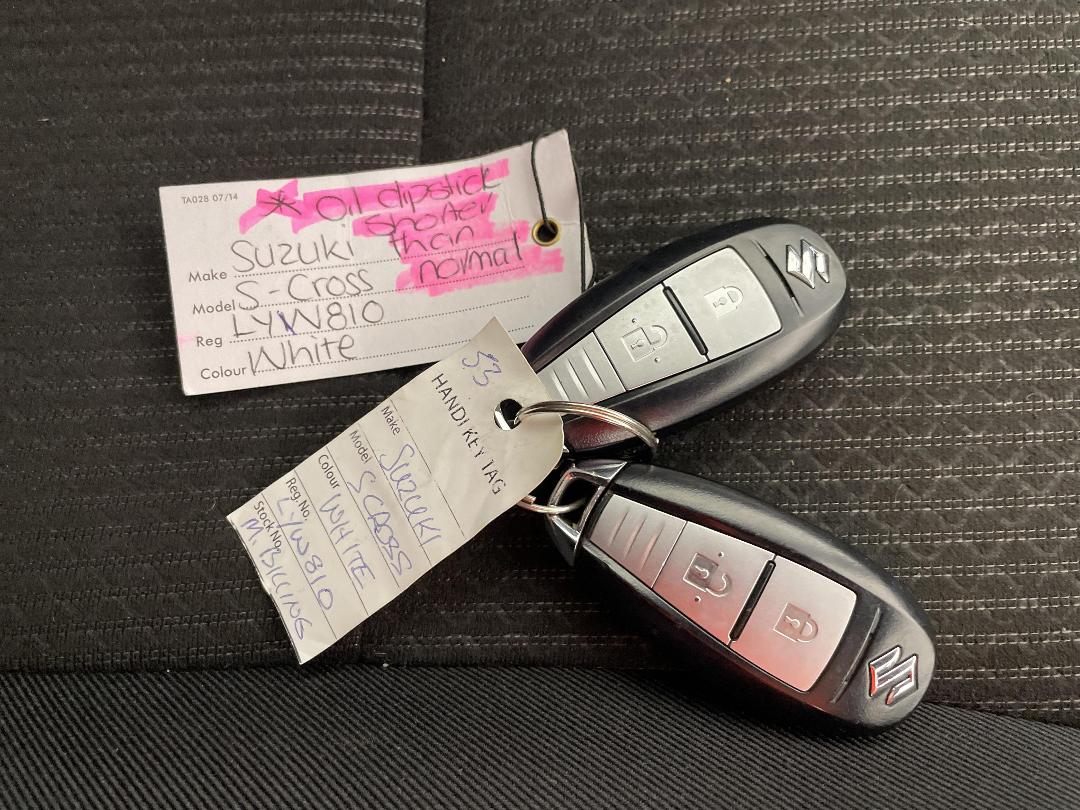 TA028 07/14
* Oil dipstick
shorter
than
normal
Make Suzuki
Model S-Cross
Reg LYW810
Colour White
53
HANDI KEY TAG
Make SUZUKI
Model S CROSS
Colour WHITE
Reg.No. LYW810
Stock No. M.